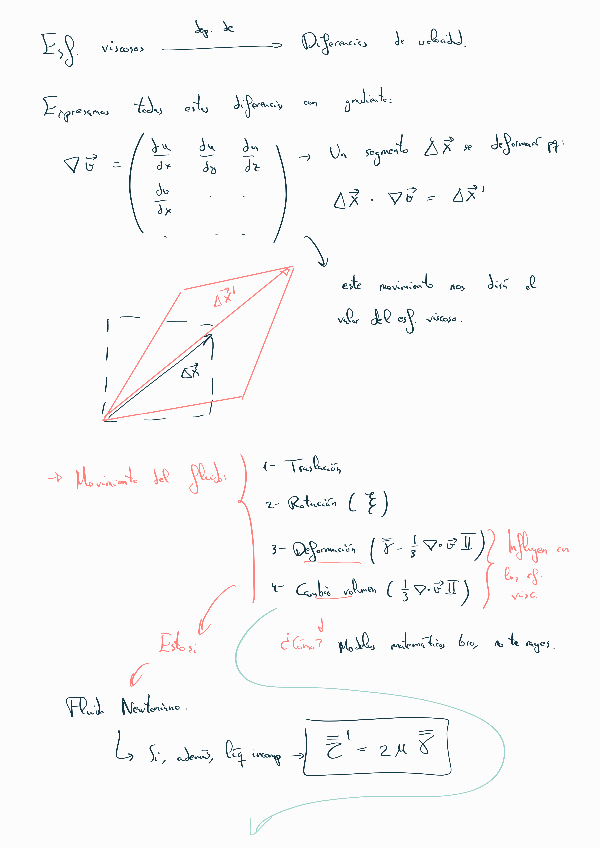 Esf. viscosos dep. de → Diferencias de velocidad.
Expresamos todas estas diferencias con gradiente:
∇v⃗ = ( du/dx du/dy du/dz → Un segmento Δx⃗ se deformará pq:
dv/dx · · Δx⃗ · ∇v⃗ = Δx⃗'
· · · )
este movimiento nos dirá el
valor del esf. viscoso.
Δx⃗'
Δx⃗
→ Movimiento del fluido:
1- Traslación
2- Rotación ( ξ̿ )
3- Deformación ( γ̿ - 1/3 ∇·v⃗ I̿ )
4- Cambio volumen ( 1/3 ∇·v⃗ I̿ )
Influyen en
los esf.
visco.
Esto si
¿Cómo? Modelos matemáticos bro, no te rayes.
Fluido Newtoniano.
↳ Si, además, líq incomp → τ̿' = 2μ γ̿